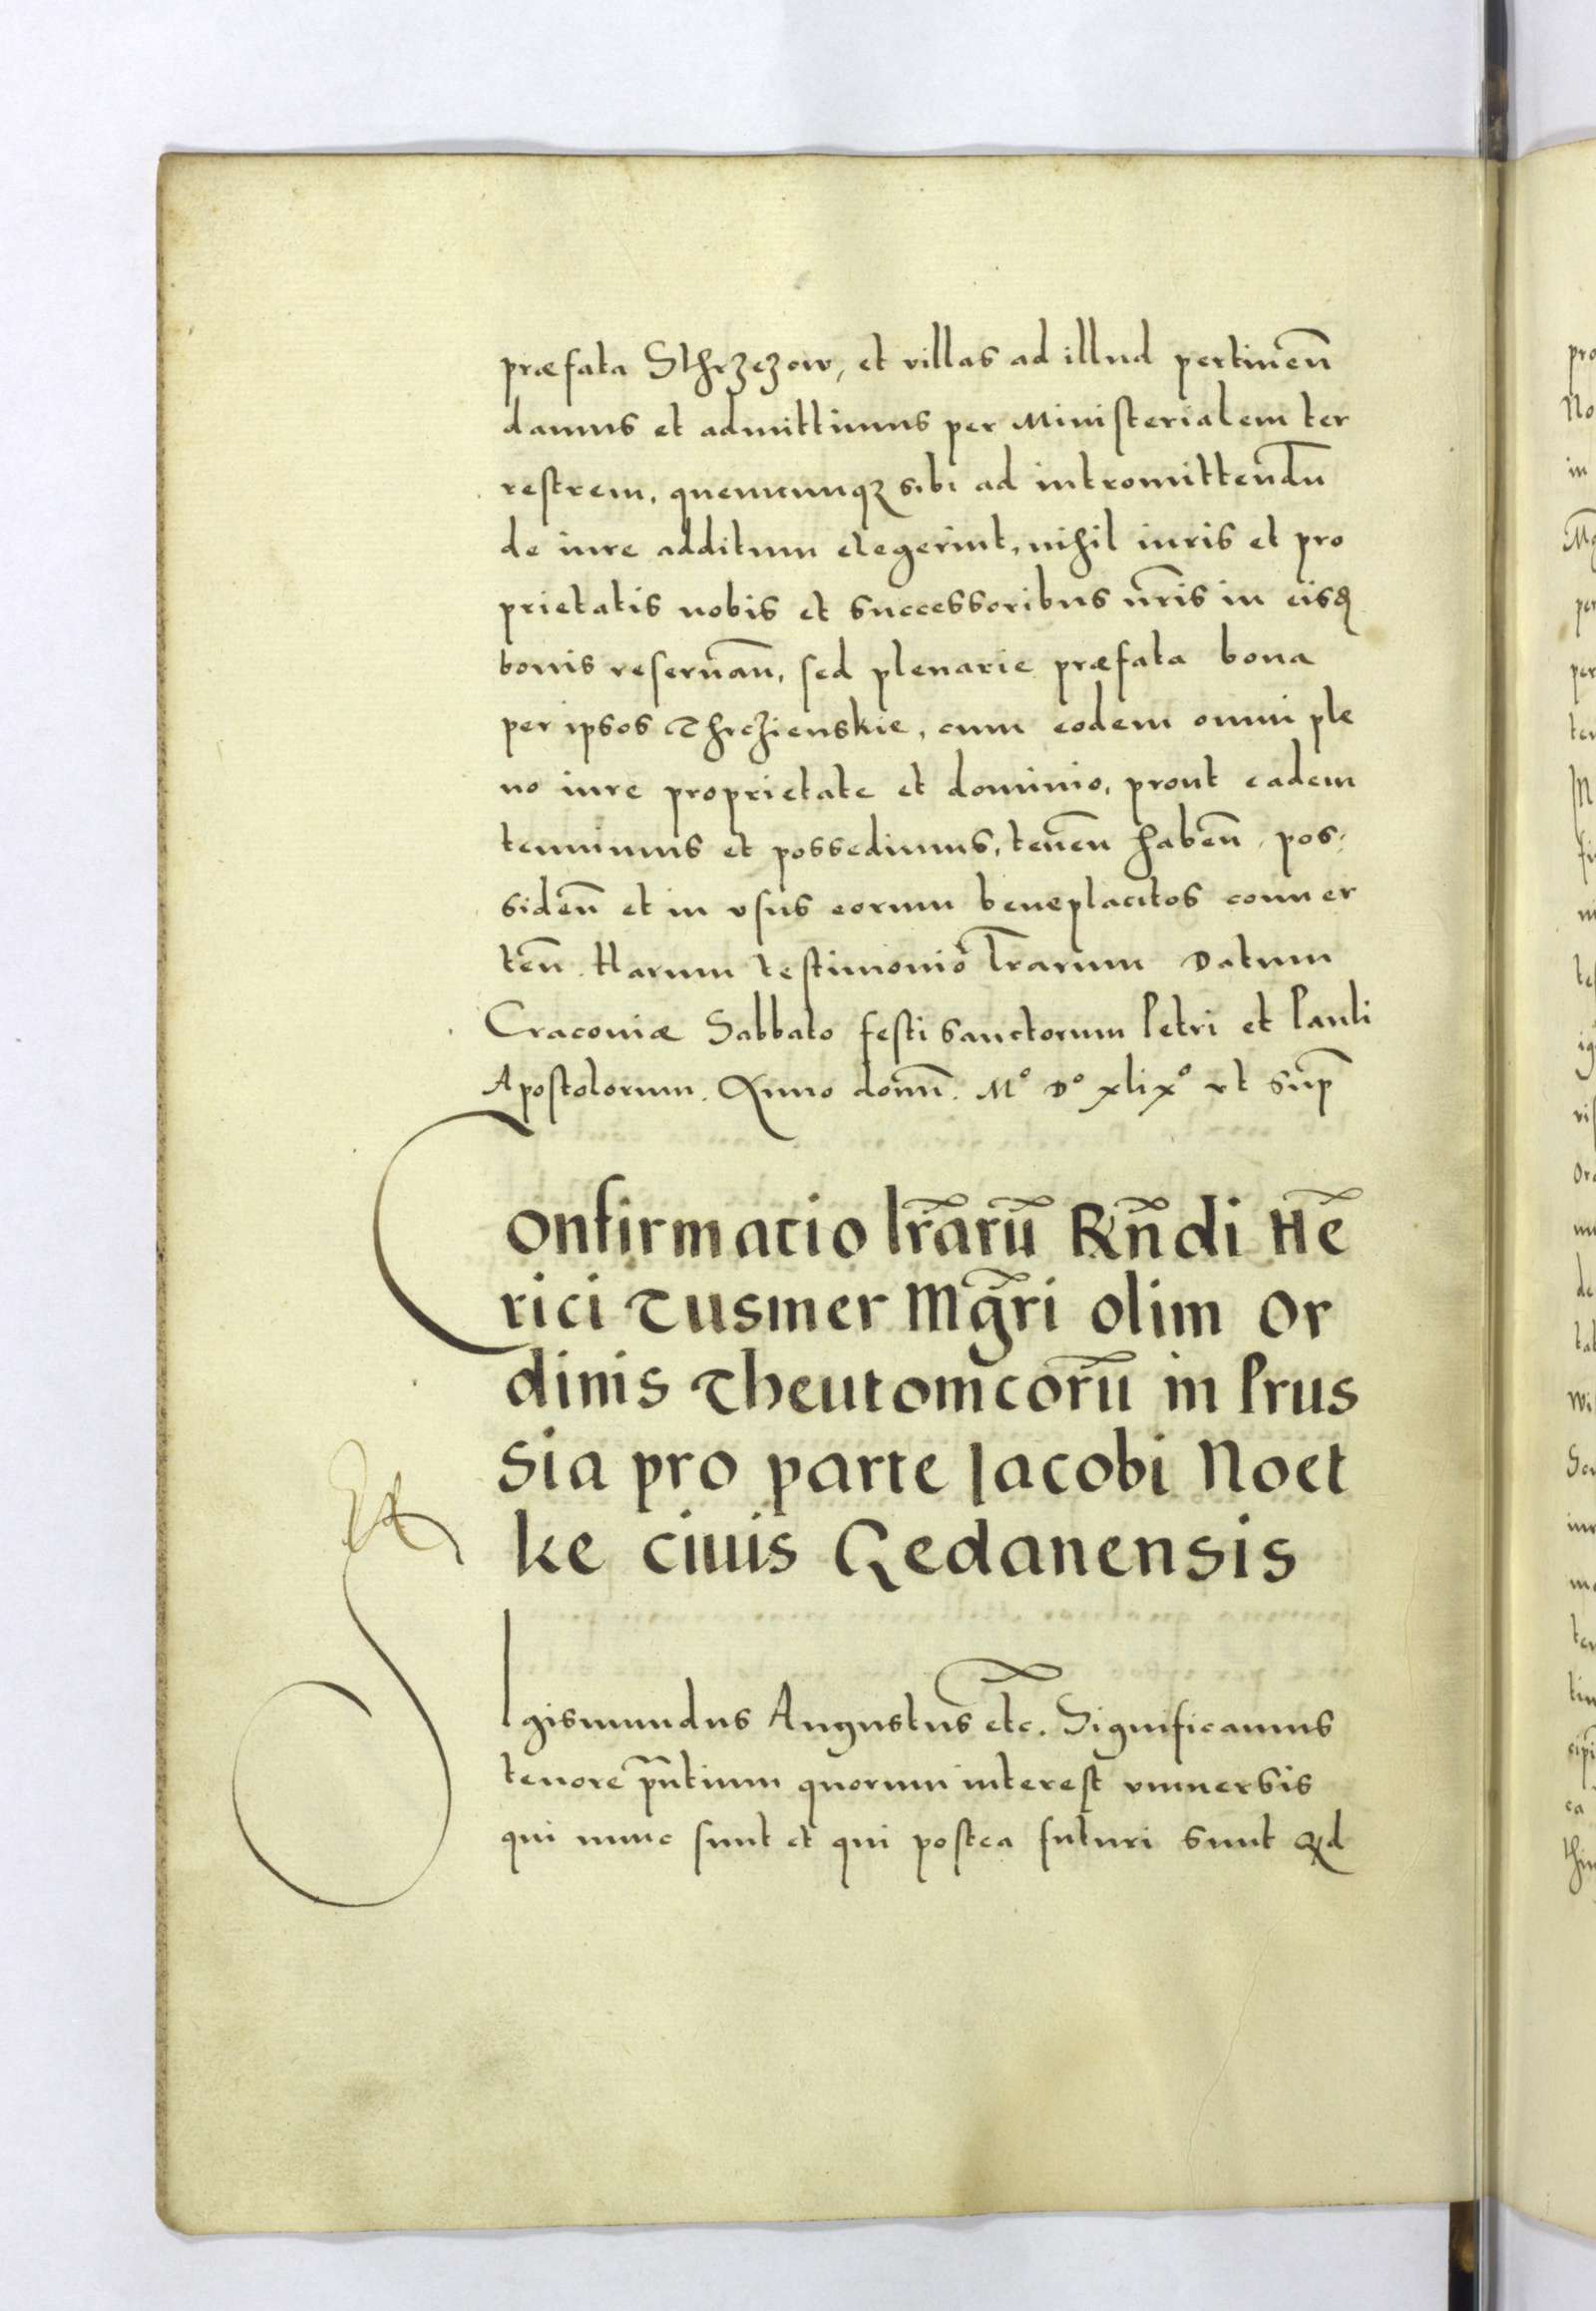 præfata Sthrzezow, et villas ad illud pertineñ
damus et admittimus per Ministerialem ter
restrem, quemcunqꝫ sibi ad intromittendū
de iure additum elegerint, nihil iuris et pro
prietatis nobis et successoribus nr̄is in eisd
bonis reseruañ, sed plenarie præfata bona
per ipsos Thrczienskie, cum eodem omni ple
no iure proprietate et dominio, prout eadem
tenuimus et possedimus, teneñ habeñ, pos,
sideñ et in vsus eorum beneplacitos conuer
teñ. Harum testimonio lr̄arum Datum
Cracoviæ Sabbato festi sanctorum Petri et Pauli
Apostolorum. Anno domi͞. Mº Dº xlixº vt sup̄
Confirmatio lr̄arū Rn̄di He͞
rici Tusmer Mg̅ri olim or
dinis Theutonicorū in Prus
sia pro parte Jacobi Noet
ke ciuis Gedanensis
Sigismundus Augustus etc. Significamus
tenore pn̄tium quorum interest vniuersis
qui nunc sunt et qui postea futuri sunt Qd